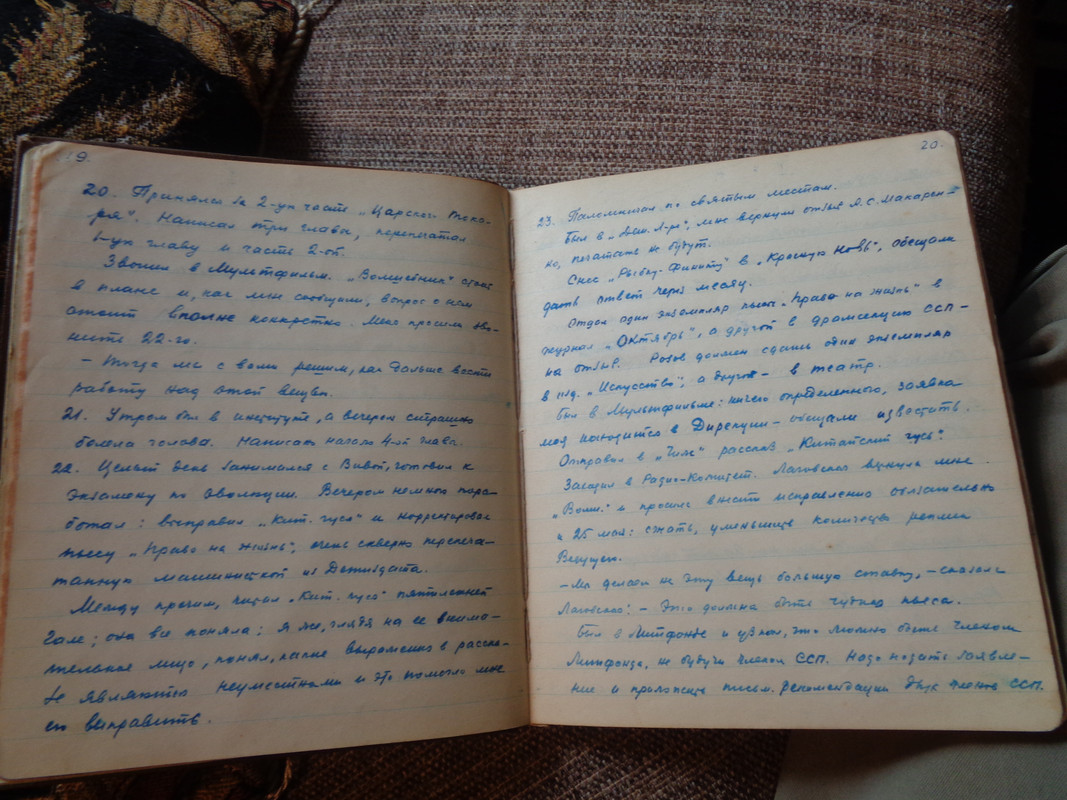 19.
20. Принялся за 2-ую часть „Царского тока-
ря". Написал три главы, перепечатал
1-ую главу и часть 2-ой.
Звонил в Мультфильм. „Волшебник" стоит
в плане и, как мне сообщили, вопрос о нем
стоит вполне конкретно. Меня просили зво-
нить 22-го.
– Тогда мы с вами решим, как дальше вести
работу над этой вещью.
21. Утром был в институте, а вечером страшно
болела голова. Написал начало 4-ой главы.
22. Целый день занимался с Вивой, готовил к
экзамену по эволюции. Вечером немного пора-
ботал: выправил „Кит. гуся" и корректировал
пьесу „Право на жизнь", очень скверно перепеча-
танную машинисткой из Детиздата.
Между прочим, читал „Кит. гуся" пятилетней
Гале; она все поняла; я же, глядя на ее внима-
тельное лицо, понял, какие выражения в расска-
зе являются неуместными и это помогло мне
его выправить.
20.
23. Паломничал по святым местам.
Был в „Дет. Л-ре", мне вернули отзыв А.С. Макарен-
ко, печатать не будут.
Снес „Рыбку-Финиту" в „Красную Новь", обещали
дать ответ через месяц.
Отдал один экземпляр пьесы „Право на жизнь" в
журнал „Октябрь", а другой в драмсекцию ССП –
на отзыв. Розов должен сдать один экземпляр
в изд. „Искусство", а другой – в театр.
Был в Мультфильме: ничего определенного, заявка
моя находится в Дирекции – обещали известить.
Отправил в „Чиж" рассказ „Китайский гусь".
Заходил в Радио-Комитет. Лаговская вернула мне
„Волш." и просила внести исправления обязательно
к 25 мая: сжать, уменьшить количество реплик
Ведущего.
– Мы делаем на эту вещь большую ставку, – сказала
Лаговская, – Это должна быть чудная пьеса.
Был в Литфонде и узнал, что можно быть членом
Литфонда, не будучи членом ССП. Надо подать заявле-
ние и приложить письм. рекомендации двух членов ССП.